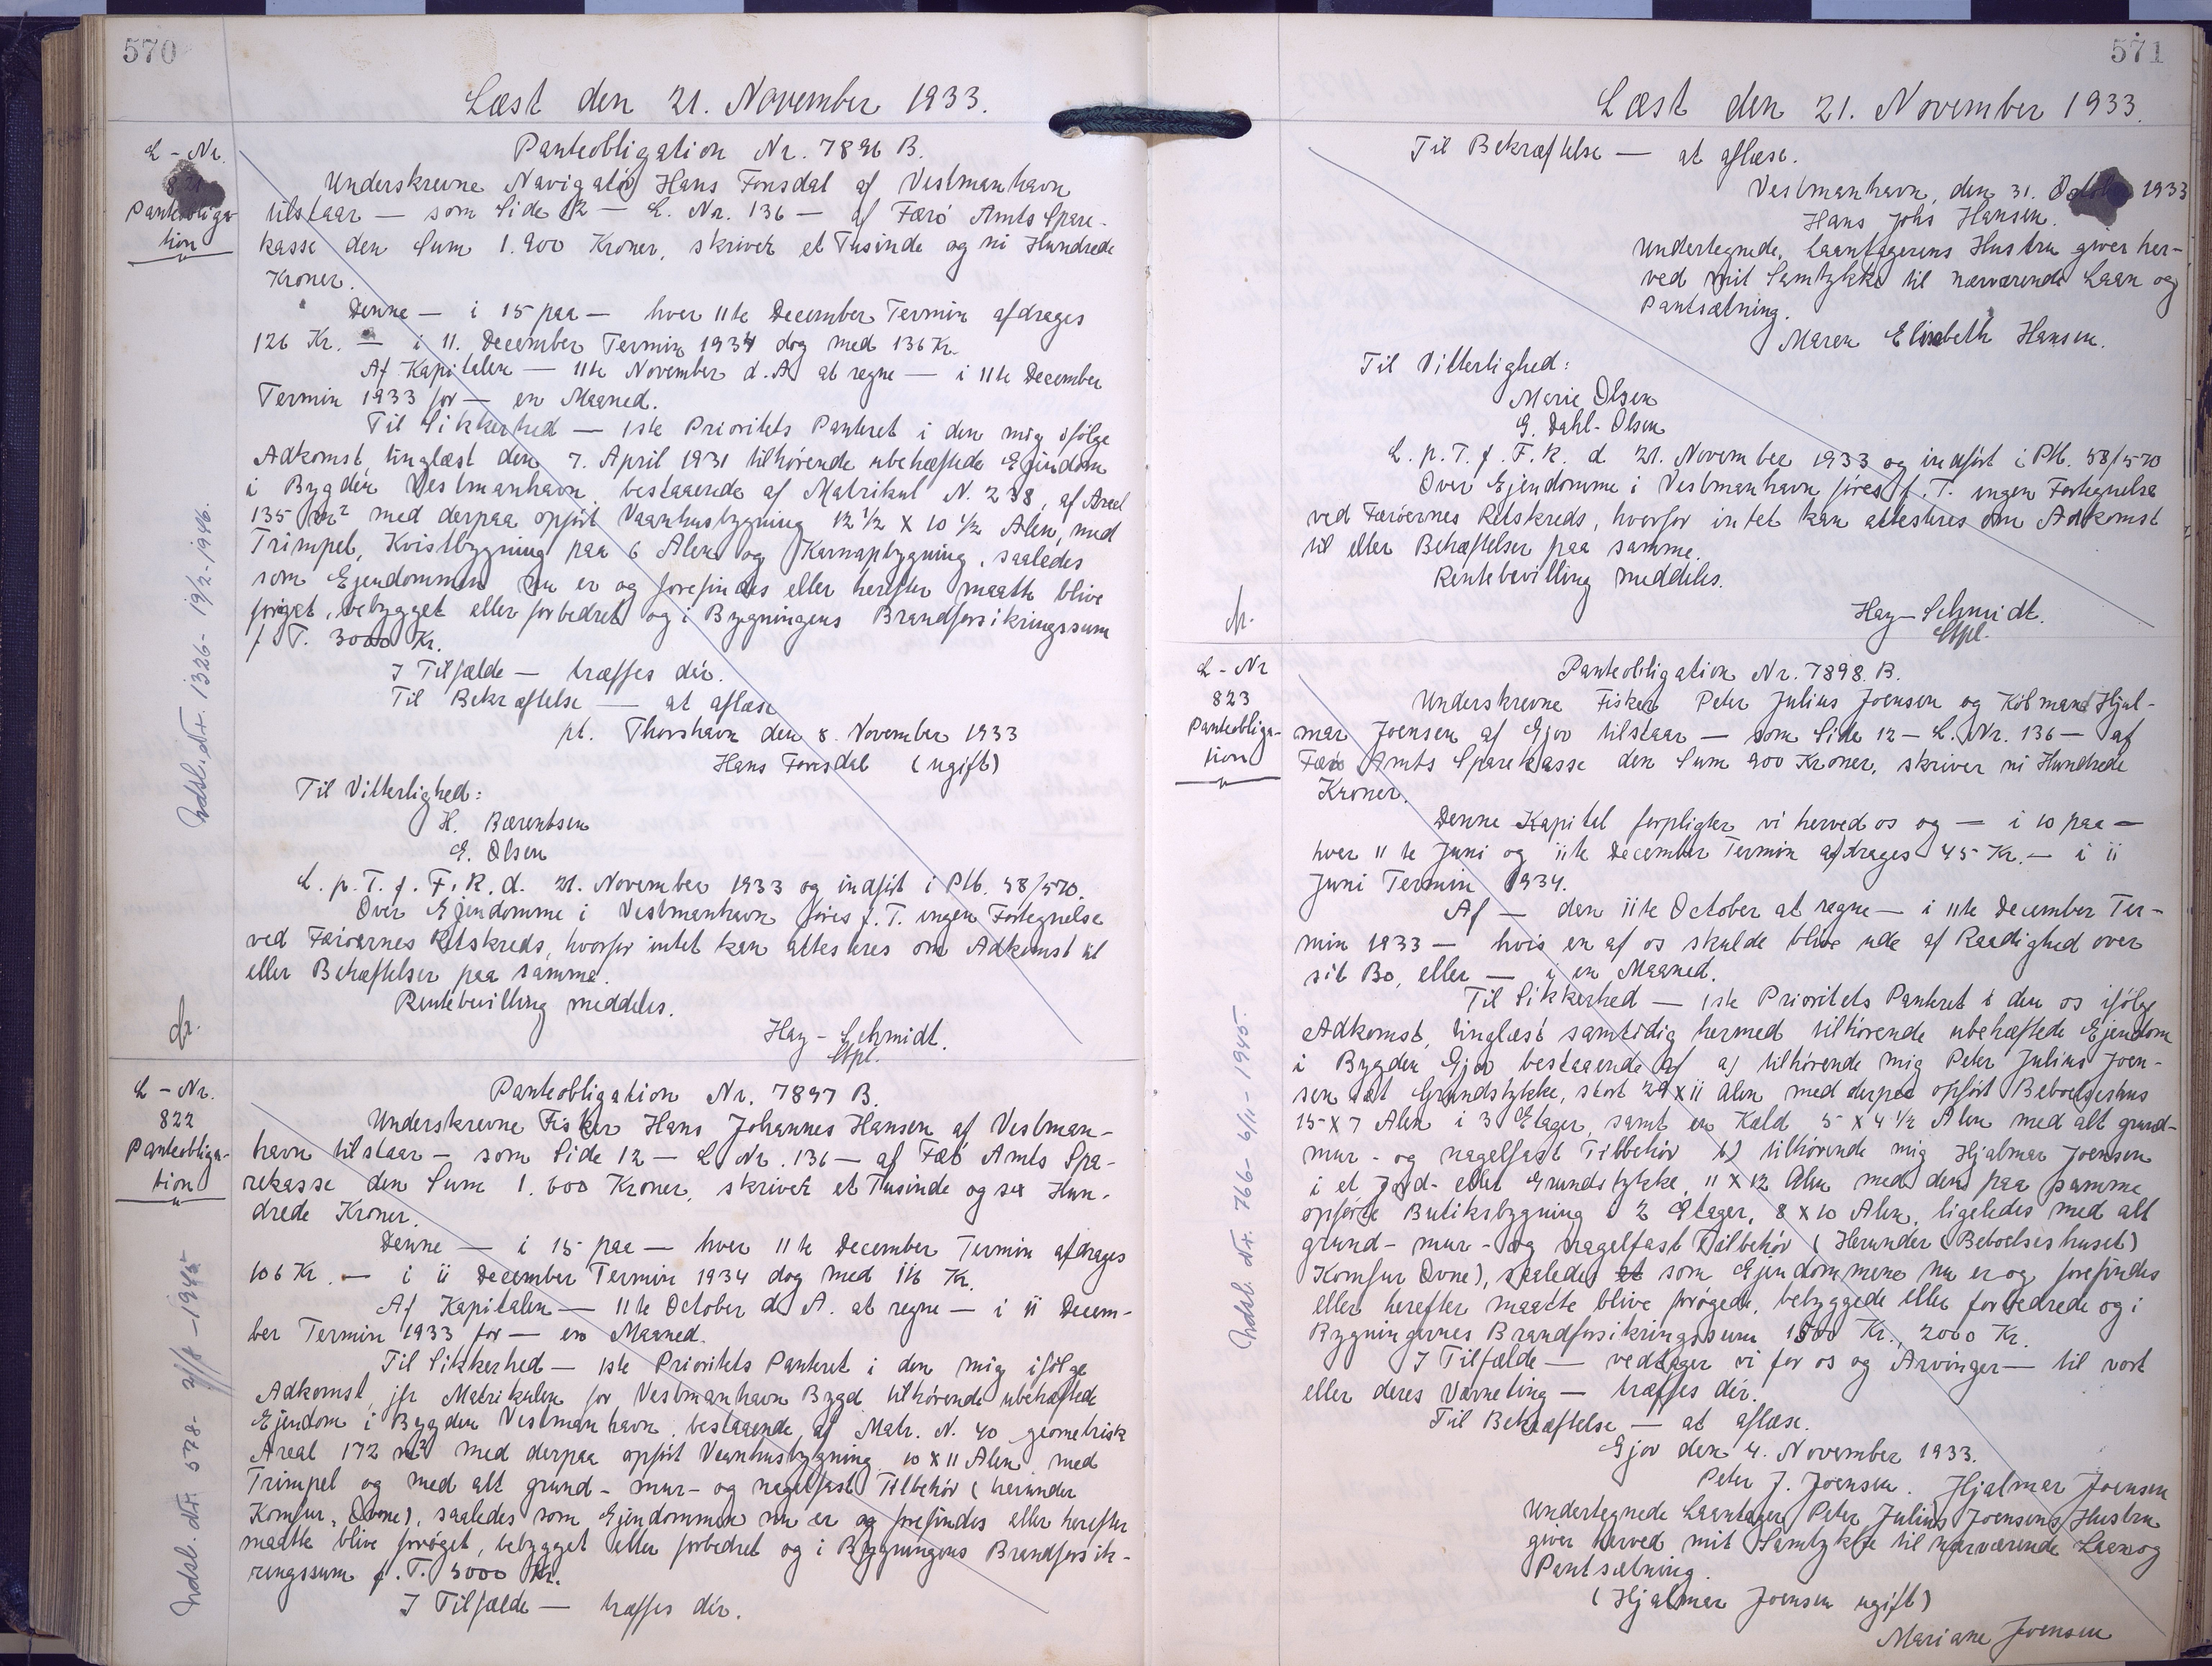 570
Læst den 21. November 1933.
L-Nr.
821
Panteobliga-
tion
Panteobligation Nr. 7896 B.
Underskrevne Navigatør Hans Fonsdal af Vestmanhavn
tilstaar — som Side 12 — L. Nr. 136 — af Færö Amts Spare-
kasse den Sum 1.900 Kroner, skriver et Tusinde og ni Hundrede
Kroner.
Denne — i 15 paa — hver 11te December Termin afdrages
126 Kr. — i 11. December Termin 1934 dog med 136 Kr.
Af Kapitalen — 11te November d. A. at regne — i 11te December
Termin 1933 for — en Maaned.
Til Sikkerhed — 1ste Prioritets Panteret i den mig ifölge
Adkomst, tinglæst den 7. April 1931 tilhörende ubehæftede Ejendom
i Bygden Vestmanhavn, bestaaende af Matrikul N. 238, af Areal
135 m² med derpaa opfört Vaanhusbygning 12 1/2 x 10 1/2 Alen, med
Trimpel, Kvistbygning paa 6 Alen og Karnapbygning, saaledes
som Ejendommen nu er og forefindes eller herefter maatte blive
foröget, bebygget eller forbedret og i Bygningens Brandforsikringssum
f. T. 3000 Kr.
I Tilfælde — træffes dér.
Til Bekræftelse — at aflæse
pt. Thorshavn den 8. November 1933
Hans Fonsdal (ugift)
Til Vitterlighed:
H. Bærentsen
E. Olsen
L. p. T. f. F. R. d. 21. November 1933 og indfört i Ptb. 58/570.
Over Ejendomme i Vestmanhavn föres f. T. ingen Fortegnelse
ved Færöernes Retskreds, hvorfor intet kan attesteres om Adkomst til
eller Behæftelser paa samme.
Rentebevilling meddeles.
Hay-Schmidt.
Stpl.
Indsl. Nr. 1326- 19/2-1946.
L-Nr.
822
Panteobliga-
tion
Panteobligation Nr. 7897 B.
Underskrevne Fisker Hans Johannes Hansen af Vestman-
havn tilstaar — som Side 12 — L. Nr. 136 — af Færö Amts Spa-
rekasse den Sum 1.600 Kroner, skriver et Tusinde og sex Hun-
drede Kroner.
Denne — i 15 paa — hver 11te December Termin afdrages
106 Kr. — i 11 December Termin 1934 dog med 116 Kr.
Af Kapitalen — 11te October d. A. at regne — i 11 Decem-
ber Termin 1933 for — en Maaned.
Til Sikkerhed — 1ste Prioritets Panteret i den mig ifölge
Adkomst, jfr Matrikulen for Vestmanhavn Bygd tilhörende ubehæftede
Ejendom i Bygden Vestmanhavn, bestaaende af Matr. N. 40 geometrisk
Areal 172 m² med derpaa opfört Vaanhusbygning 10 x 11 Alen med
Trimpel og med alt grund- mur- og nagelfast Tilbehör (herunder
Komfur, Ovne), saaledes som Ejendommen nu er og forefindes eller herefter
maatte blive foröget, bebygget eller forbedret og i Bygningens Brandforsik-
ringssum f. T. 3000 Kr.
I Tilfælde — træffes dér.
571
Læst den 21. November 1933.
Til Bekræftelse — at aflæse.
Vestmanhavn, den 31. October 1933
Hans Johs Hansen.
Undertegnede, Laantagerens Hustru giver her-
ved mit Samtykke til nærværende Laan og
Pantsætning.
Maren Elisabeth Hansen.
Til Vitterlighed:
Marie Olsen
G. Dahl-Olsen
L. p. T. f. F. R. d. 21. November 1933 og indfört i Ptb. 58/570
Over Ejendomme i Vestmanhavn föres f. T. ingen Fortegnelse
ved Færöernes Retskreds, hvorfor intet kan attesteres om Adkomst
til eller Behæftelser paa samme.
Rentebevilling meddeles.
Hay-Schmidt.
Stpl.
L-Nr
823
Panteobliga-
tion
Panteobligation Nr. 7898. B.
Underskrevne Fisker Peter Julius Joensen og Köbmand Hjal-
mar Joensen af Gjov tilstaar — som Side 12 — L. Nr. 136 — af
Færö Amts Sparekasse den Sum 900 Kroner, skriver ni Hundrede
Kroner.
Denne Kapital forpligter vi herved os og — i 10 paa —
hver 11te Juni og 11te December Termin afdrages 45 Kr. — i 11
Juni Termin 1934.
Af — den 11te October at regne — i 11te December Ter-
min 1933 — hvis en af os skulde blive ude af Raadighed over
sit Bo, eller — i en Maaned.
Til Sikkerhed — 1ste Prioritets Panteret i den os ifölge
Adkomst, tinglæst samtidig hermed tilhörende ubehæftede Ejendom
i Bygden Gjov bestaaende af a) tilhörende mig Peter Julius Joen-
sen i et Grundstykke, stort 29 x 11 Alen med derpaa opfört Beboelseshus
15 x 7 Alen i 3 Etager, samt en Kæld 5 x 4 1/2 Alen med alt grund-
mur- og nagelfast Tilbehör b) tilhörende mig Hjalmar Joensen
i et Jord- eller Grundstykke, 11 x 12 Alen med den paa samme
opförte Butiksbygning i 2 Etager, 8 x 10 Alen, ligeledes med alt
grund- mur- og nagelfast Tilbehör (Herunder (Beboelseshuset)
Komfur Ovne), saaledes som Ejendommene nu er og forefindes
eller herefter maatte blive forögede, bebyggede eller forbedrede og i
Bygningernes Brandforsikringssum 1500 Kr., 2000 Kr.
I Tilfælde — vedtager vi for os og Arvinger — til vort
eller deres Værneting — træffes dér.
Til Bekræftelse — at aflæse.
Gjov den 4. November 1933.
Peter J. Joensen. Hjalmar Joensen
Undertegnede Laantager Peter Julius Joensens Hustru
giver herved mit Samtykke til nærværende Laan og
Pantsætning.
(Hjalmar Joensen ugift)
Mariane Joensen
Indsl. Nr. 766- 6/11-1945.